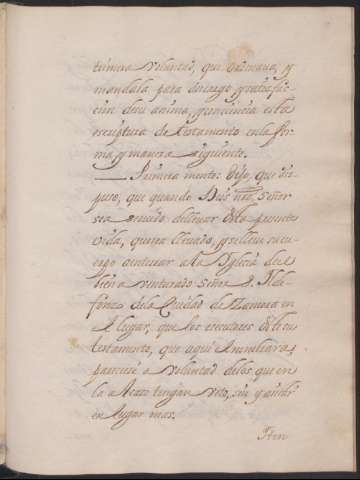 trimera voluntad, que ordenaua, y
mandaba para descargo, y satisfac
cion de su anima, y conciencia esta
escriptura de testamento en la for
ma, y manera siguiente.
Primera mente: Dijo, que dis
puso, que quando Dios nro. Señor
sea seruido de lleuar desta presente
vida, que sea lleuado, y se lleue su cu
erpo a enterrar a la Yglesia del
bien a venturado Señor S. Ilde
fonso de la Ciudad de Zamora en
el lugar, que los executores deste su
testamento, que aqui nombrara,
pareciere a voluntad de los que en
la a tengan voto, sin y
en lugar mas.
Iten